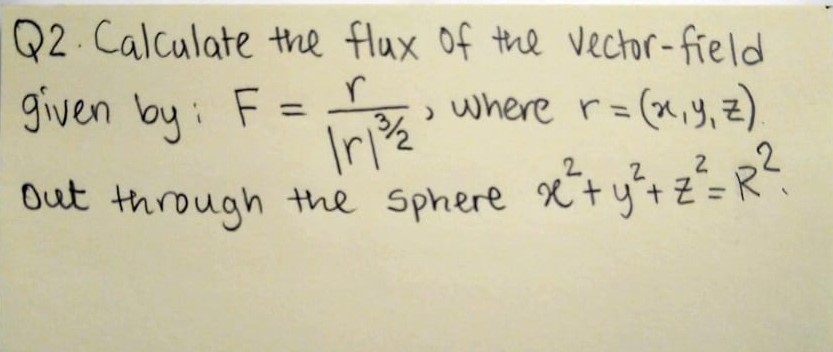 Q2. Calculate the flux of the vector-field
given by: F = r/|r|^3/2, where r = (x,y,z).
out through the sphere x²+y²+z²=R².